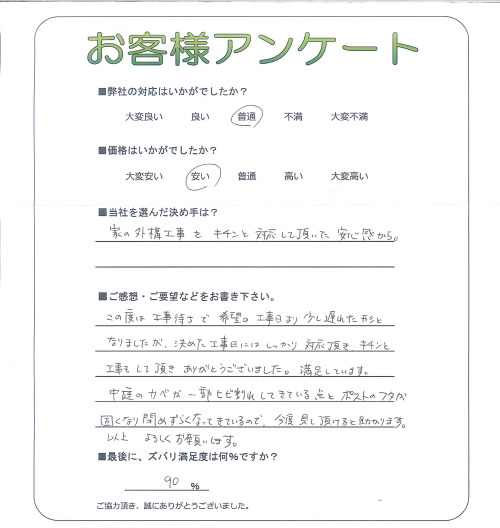 お客様アンケート
■弊社の対応はいかがでしたか？
大変良い 良い 普通 不満 大変不満
■価格はいかがでしたか？
大変安い 安い 普通 高い 大変高い
■当社を選んだ決め手は？
家の外構工事を キチンと 対応して頂いた 安心感から。
■ご感想・ご要望などをお書き下さい。
この度は 工事待ちで 希望の工事日より 少し遅れたカンジと
なりましたが、決めた工事日には しっかり 対応頂き キチンと
工事もして頂き ありがとうございました。満足しています。
中庭のカベが 一部ヒビ割れしてきている点と ポストのフタが
固くなり閉めずらくなってきているので、今度見て頂けると助かります。
以上 よろしくお願いします。
■最後に、ズバリ満足度は何％ですか？
90 ％
ご協力頂き、誠にありがとうございました。